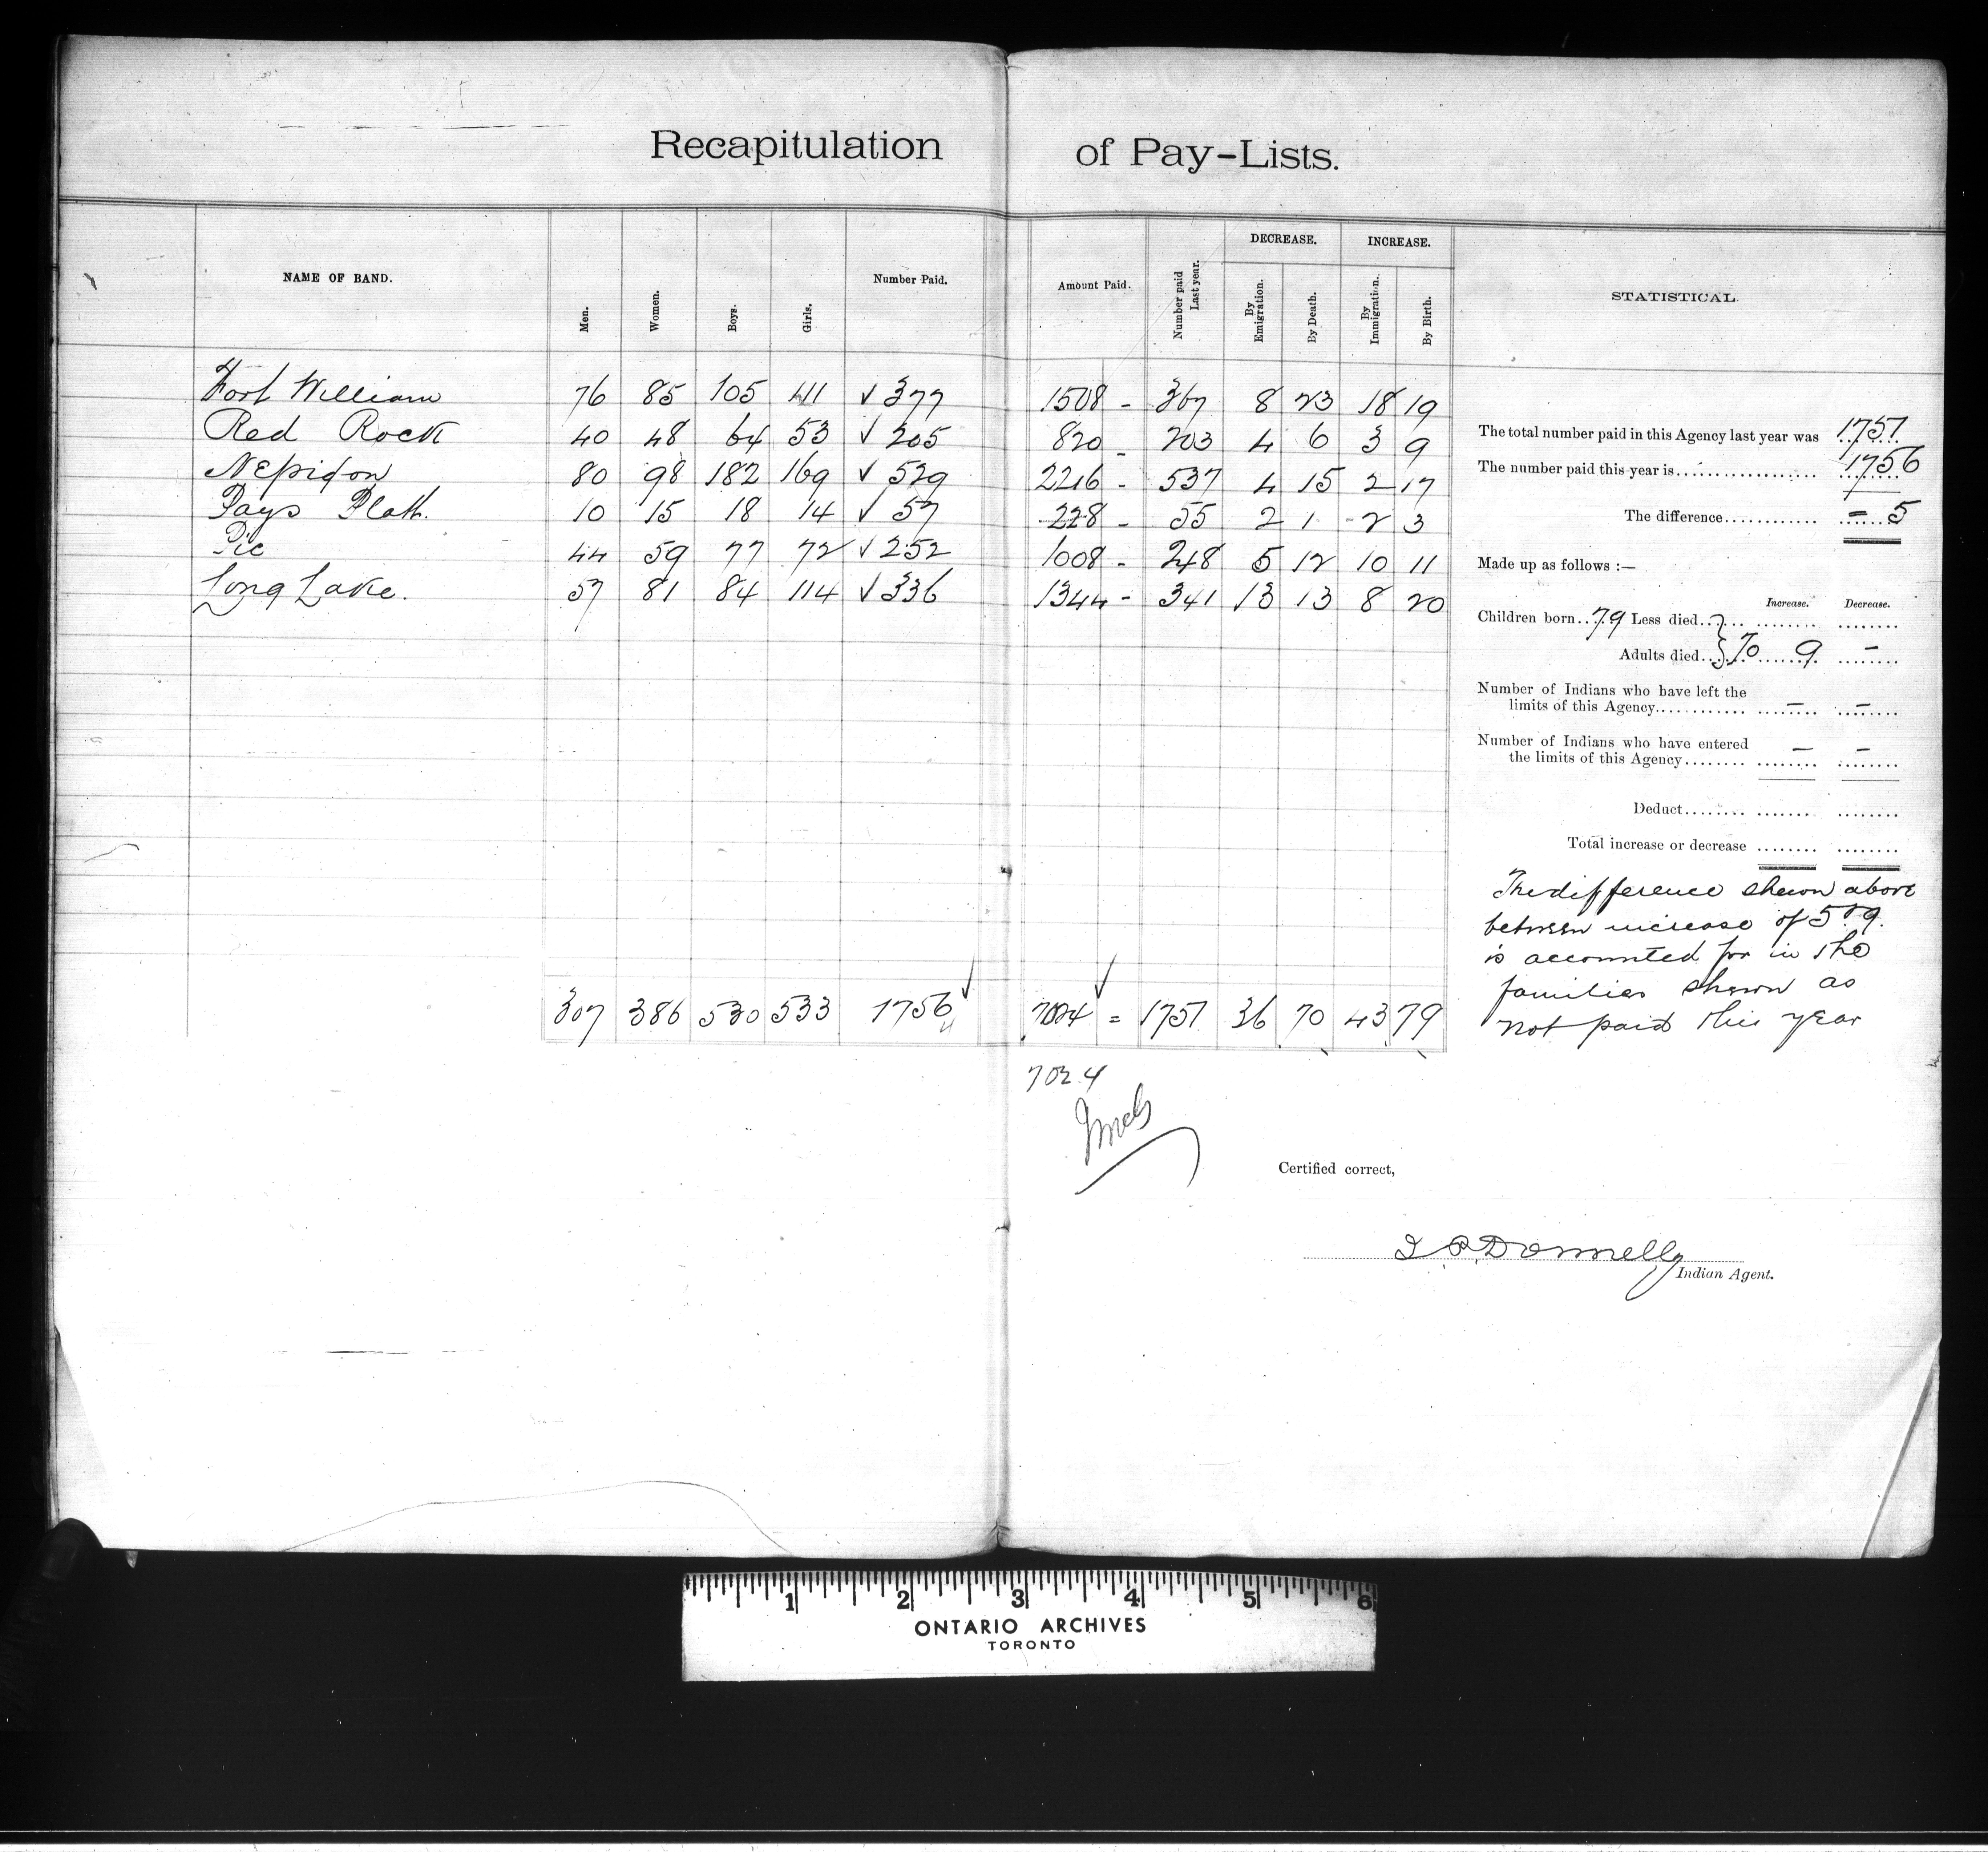 Recapitulation of Pay-Lists.
NAME OF BAND. Men. Women. Boys. Girls. Number Paid. Amount Paid. Number paid Last year. DECREASE. By Emigration. By Death. INCREASE. By Immigration. By Birth. STATISTICAL.
Fort William 76 85 105 111 ✓ 377 1508 - 367 8 23 18 19
Red Rock 40 48 64 53 ✓ 205 820 - 203 4 6 3 9
Nepigon 80 98 182 169 ✓ 529 2216 - 537 4 15 2 17
Pays Platt. 10 15 18 14 ✓ 57 228 - 55 2 1 2 3
Pic 44 59 77 72 ✓ 252 1008 - 248 5 12 10 11
Long Lake. 57 81 84 114 ✓ 336 1344 - 341 13 13 8 20
307 386 530 533 1756 ✓ 7024 ✓ = 1751 36 70 43 79
7024
The total number paid in this Agency last year was 1751
The number paid this year is 1756
The difference - 5
Made up as follows :—
Increase. Decrease.
Children born 79 Less died
Adults died } 70 9 -
Number of Indians who have left the
limits of this Agency - -
Number of Indians who have entered
the limits of this Agency - -
Deduct
Total increase or decrease
The difference shewn above
between increase of 5 & 9.
is accounted for in the
families shewn as
not paid this year
Certified correct,
J P Donnelly
Indian Agent.
1 2 3 4 5 6
ONTARIO ARCHIVES
TORONTO